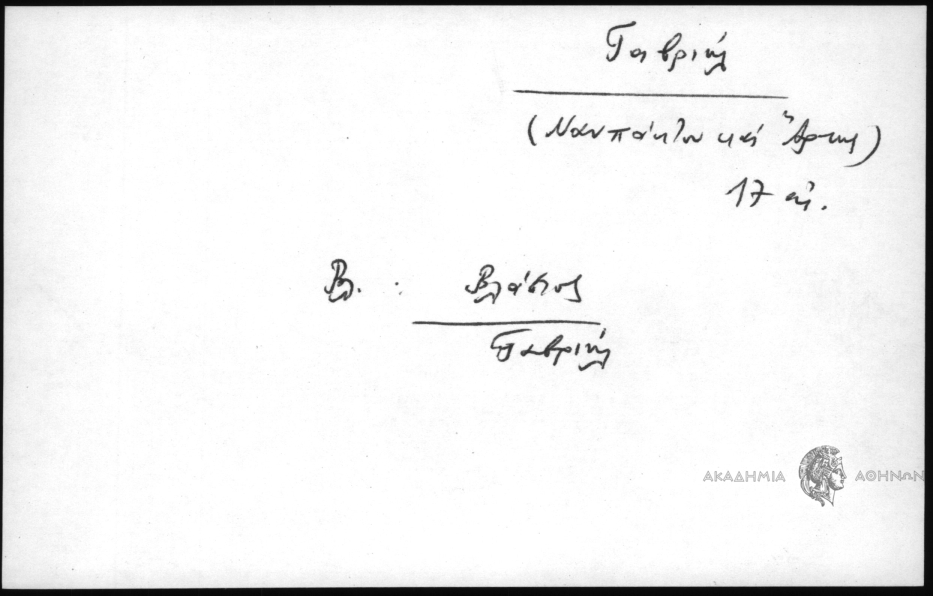 Γαβριήλ
(Ναυπάκτου καί Ἄρτης)
17 αἰ.
Βλ. : Βλάσιος
Γαβριήλ
ΑΚΑΔΗΜΙΑ ΑΘΗΝΩΝ